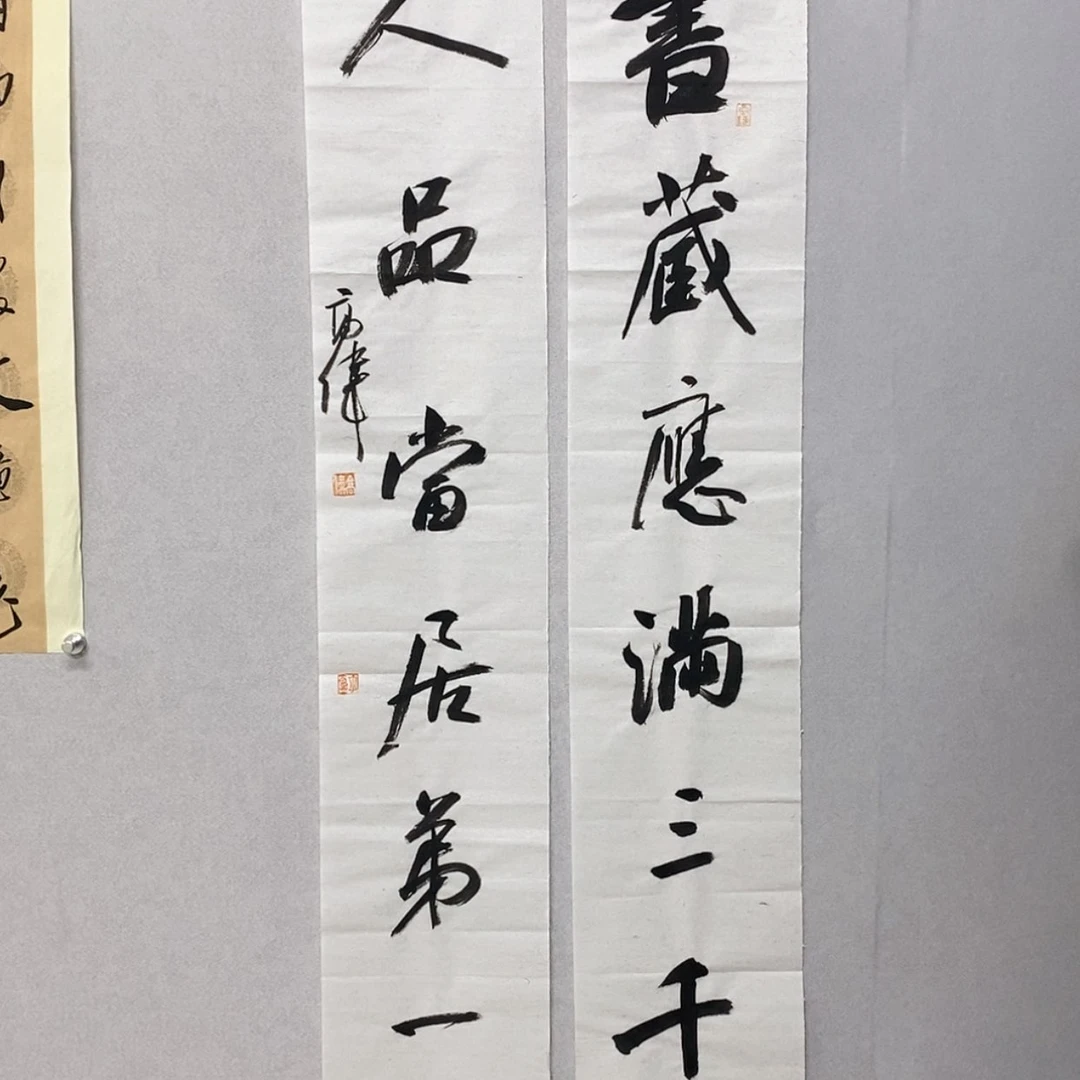 書藏應滿三千
人品當居第一